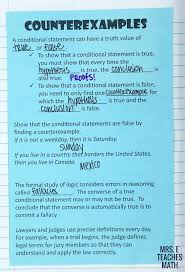 COUNTEREXAMPLES
A conditional statement can have a truth value of
true or false.
✓ To show that a conditional statement is true,
you must show that every time the
hypothesis is true, the conclusion
is also true. PROOFS!
✓ To show that a conditional statement is false,
you need to only find one counterexample for
which the hypothesis is true and the
conclusion is false.
Show that the conditional statements are false by
finding a counterexample.
If it is not a weekday, then it is Saturday.
Sunday
If you live in a country that borders the United States,
then you live in Canada.
Mexico
The formal study of logic considers errors in reasoning
called fallacies. The converse of a true
conditional statement may or may not be true. To
conclude that the converse is automatically true is to
commit a fallacy.
Lawyers and judges use precise definitions every day.
For example, when a trial begins, the judge defines
legal terms for jury members so that they can
understand and apply the law correctly.
MRS. E
TEACHES
MATH